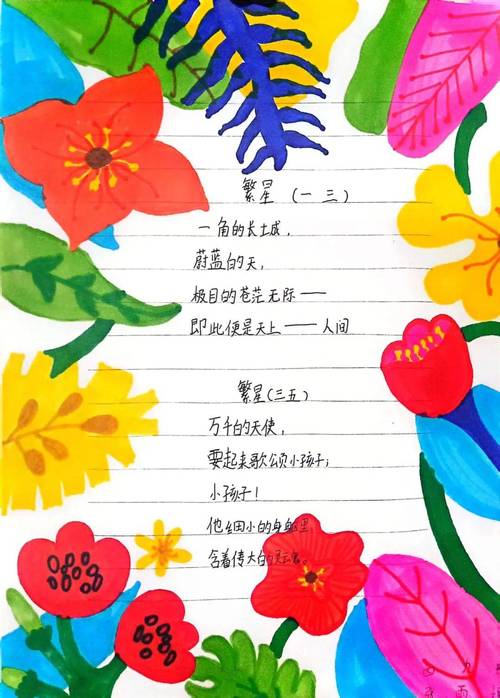 繁星（一三）
一角的长城，
蔚蓝的天，
极目的苍茫无际——
即此便是天上——人间
繁星（三五）
万千的天使，
要起来歌颂小孩子；
小孩子！
他细小的身躯里，
含着伟大的灵魂。